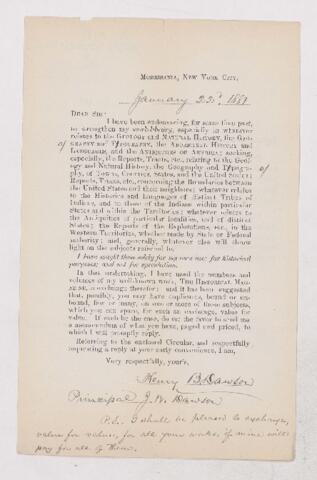 MORRISANIA, NEW YORK CITY,
January 22d, 1881
DEAR SIR:
I have been endeavoring, for some time past,
to strengthen my workd library, especially in whatever
relates to the GEOLOGY and NATURAL HISTORY, the GEO-
GRAPHY and TYPOGRAPHY, the ABORIGINAL HISTORY and
LANGUAGES, and the ANTIQUITIES OF AMERICA; seeking,
especially, the Reports, Tracts, etc., relating to the Geol-
ogy and Natural History, the Geography and Typogra-
phy, of TOWNS, COUNTIES, STATES, and the UNITED STATES;
Reports, Tracts, etc., concerning the Boundaries between
the United States and their neighbors; whatever relates
to the Histories and Languages of distinct Tribes of
Indians, and to those of the Indians within particular
States and within the Territories; whatever relates to
the Antiquities of particular localities, and of distinct
States; the Reports of the Explorations, etc., in the
Western Territories, whether made by State or Federal
authority; and, generally, whatever else will throw
light on the subjects referred to.
I have sought them solely for my own use; for historical
purposes; and not for speculation.
In this undertaking, I have used the numbers and
volumes of my well-known work, THE HISTORICAL MAGA-
ZINE, in exchange therefor; and it has been suggested
that, possibly, you may have duplicates, bound or un-
bound, few or many, on one or more of those subjects,
which you can spare, for such an exchange, value for
value. If such be the case, do me the favor to send me
a memorandum of what you have, paged and priced, to
which I will promptly reply.
Referring to the enclosed Circular, and respectfully
requesting a reply at your early convenience, I am,
Very respectfully, yours,
Henry B. Dawson
Principal J. W. Dawson
P.S. I shall be pleased to exchange,
value for value, for all your works, if mine will
pay for all of them.